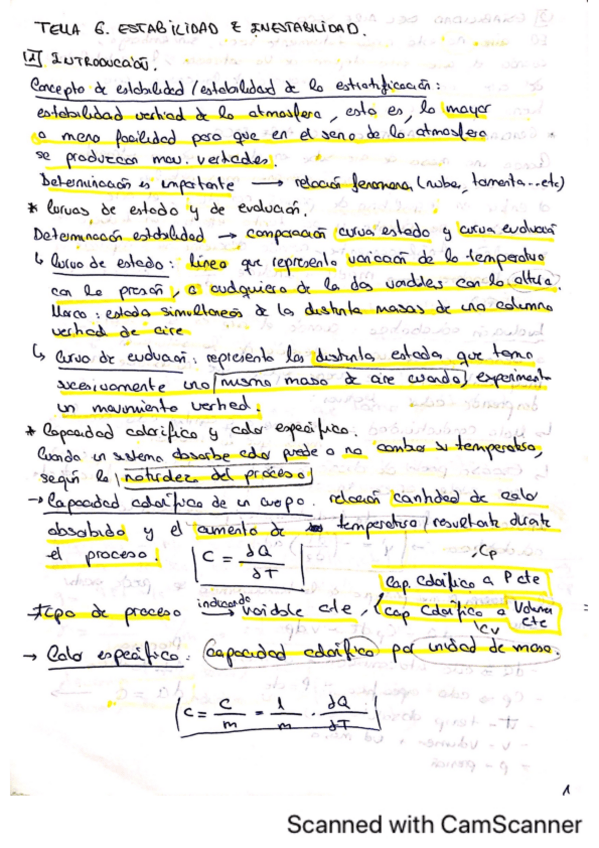 TEMA 6. ESTABILIDAD E INESTABILIDAD.
[1] INTRODUCCIÓN.
Concepto de estabilidad / estabilidad de la estratificación:
estabilidad vertical de la atmosfera, esto es, la mayor
o menor facilidad para que en el seno de la atmosfera
se produzcan mov. verticales.
Determinación es importante → relación fenomenos (nubes, tormenta...etc)
* Curvas de estado y de evolución.
Determinación estabilidad → comparación curva estado y curva evolución
↳ Curva de estado: línea que representa variación de la temperatura
con la presión, o cualquiera de las dos variables con la altura.
Marca: estado simultaneos de las distintas masas de una columna
vertical de aire
↳ Curva de evolución: representa los distintos estados que toma
sucesivamente una misma masa de aire cuando experimenta
un movimiento vertical.
* Capacidad calorífica y calor específico.
Cuando un sistema absorbe calor puede o no cambiar su temperatura,
según la naturaleza del proceso
→ Capacidad calorífica de un cuerpo. relación cantidad de calor
absorbido y el aumento de temperatura / resultante durante
el proceso. C = ∂Q / ∂T
, Cp
Cap. Calorífica a P cte
→ tipo de proceso indicando → variable cte, cap Calorífica a Volumen cte
Cv
→ Calor específico: capacidad calorífica por unidad de masa.
c = C / m = 1 / m · ∂Q / ∂T
1
Scanned with CamScanner